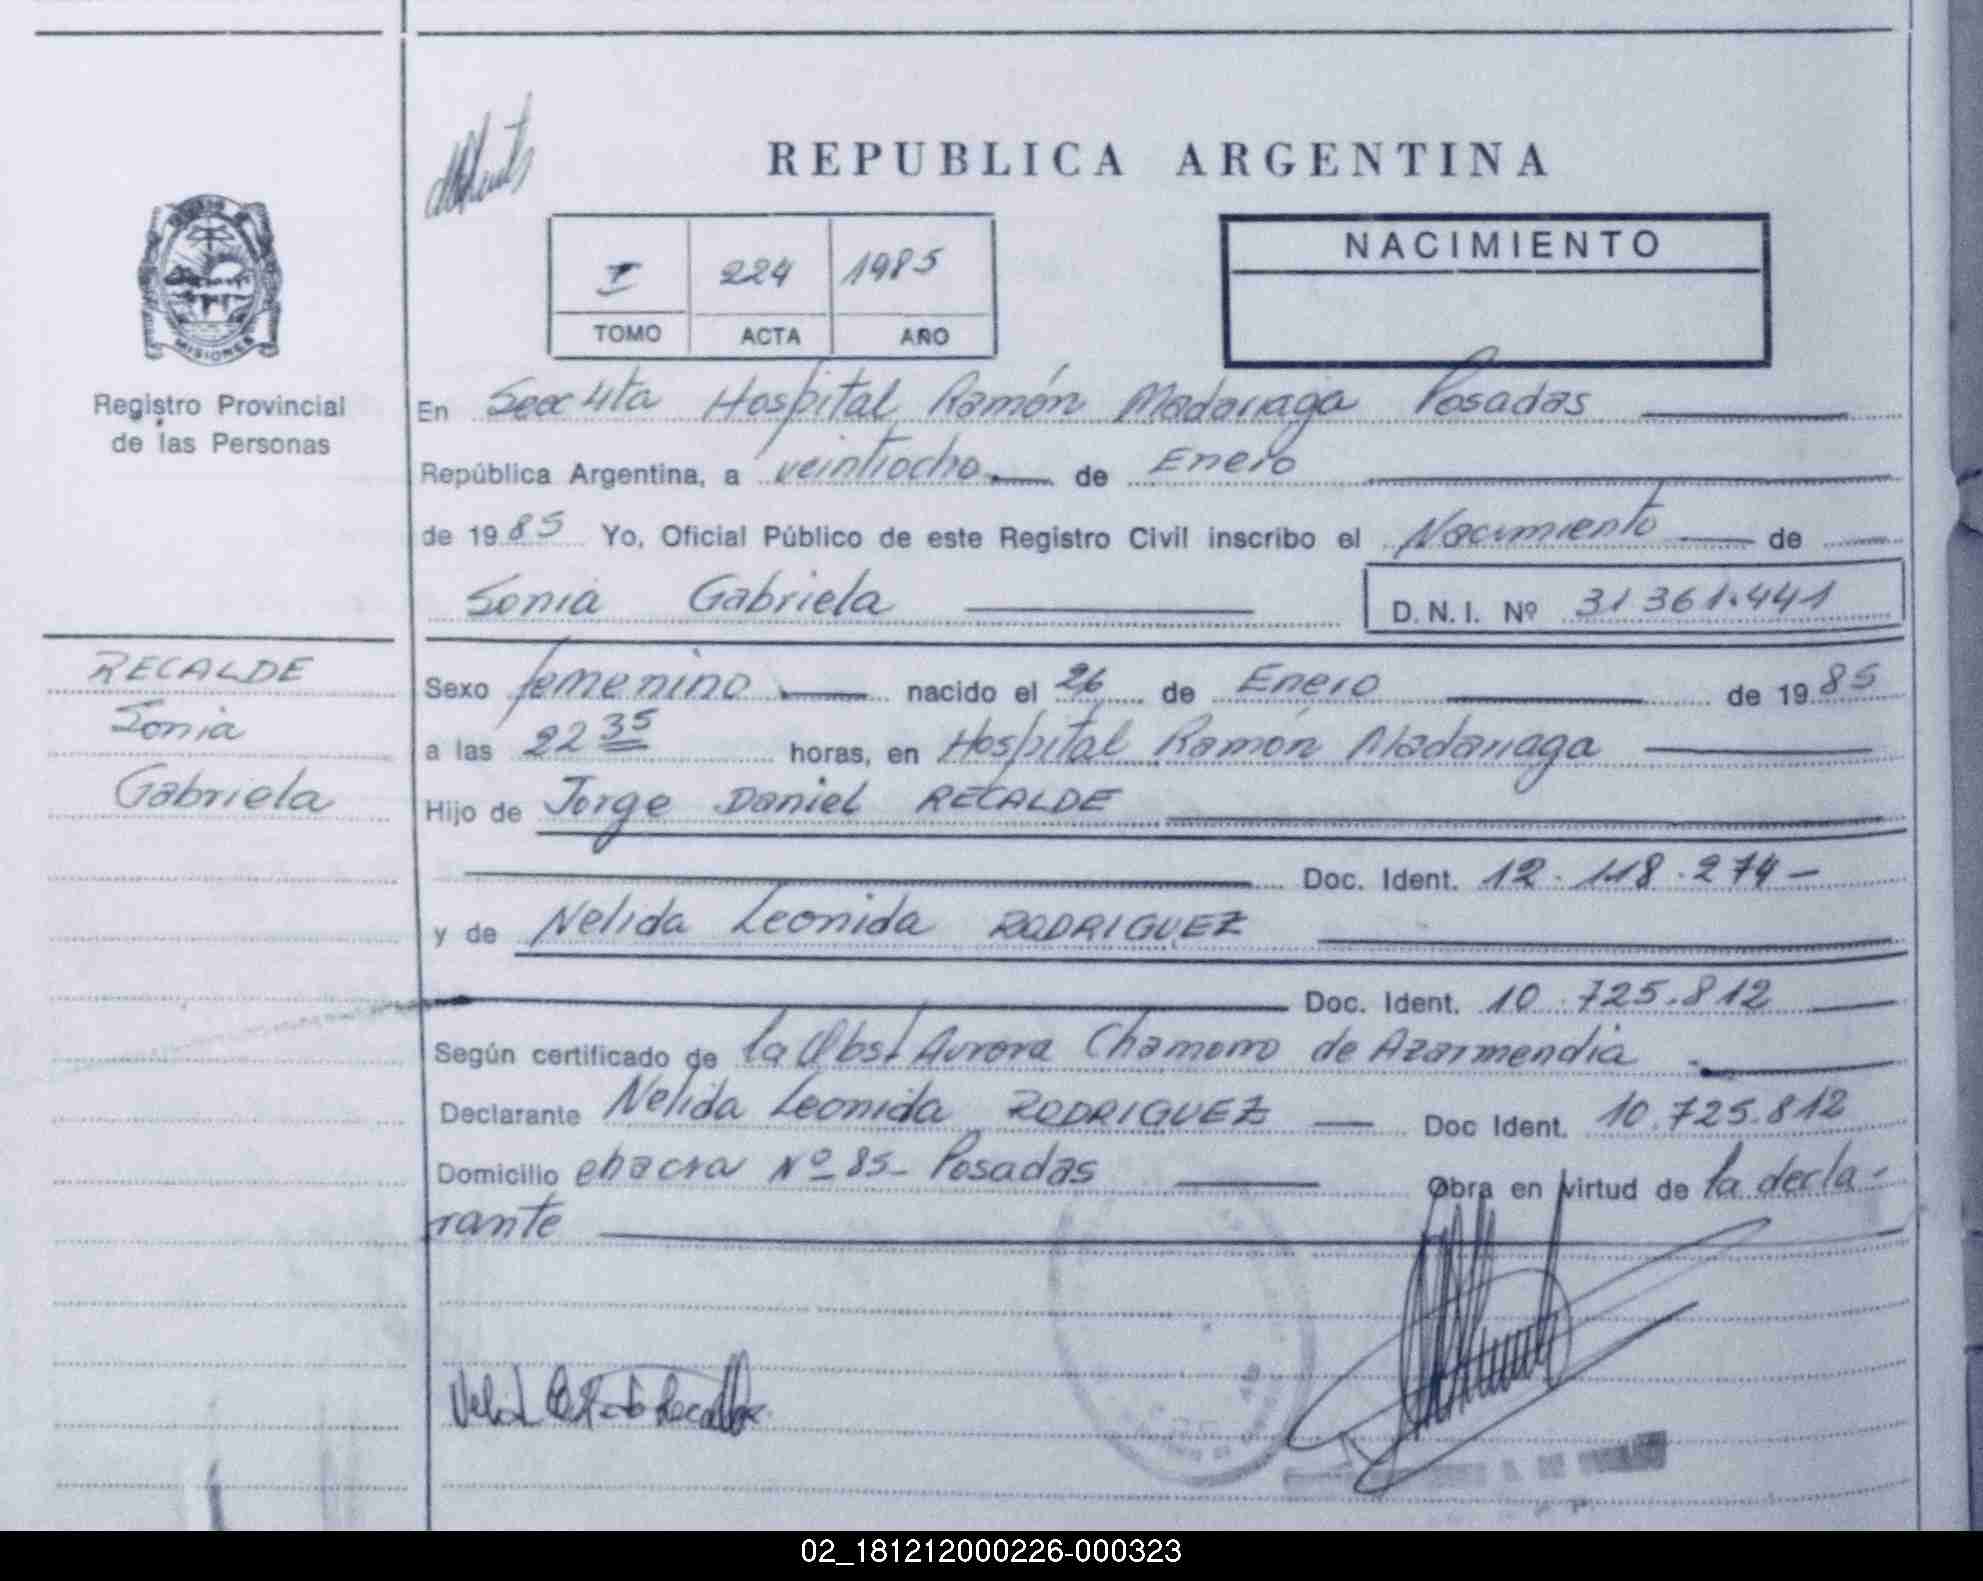 REPUBLICA ARGENTINA
NACIMIENTO
I 224 1985
TOMO ACTA AÑO
MISIONES
Registro Provincial
de las Personas
En Secc 4ta Hospital Ramón Madariaga Posadas
República Argentina, a veintiocho de Enero
de 1985 Yo, Oficial Público de este Registro Civil inscribo el Nacimiento de
Sonia Gabriela D.N.I. Nº 31361.441
RECALDE
Sonia
Gabriela
Sexo femenino nacido el 26 de Enero de 1985
a las 22 35 horas, en Hospital Ramón Madariaga
Hijo de Jorge Daniel RECALDE
Doc. Ident. 12.118.274-
y de Nelida Leonida RODRIGUEZ
Doc. Ident. 10.725.812
Según certificado de la Obst Aurora Chamorro de Azarmendia
Declarante Nelida Leonida RODRIGUEZ Doc Ident. 10.725.812
Domicilio chacra Nº 85- Posadas Obra en virtud de la decla-
rante
02_181212000226-000323